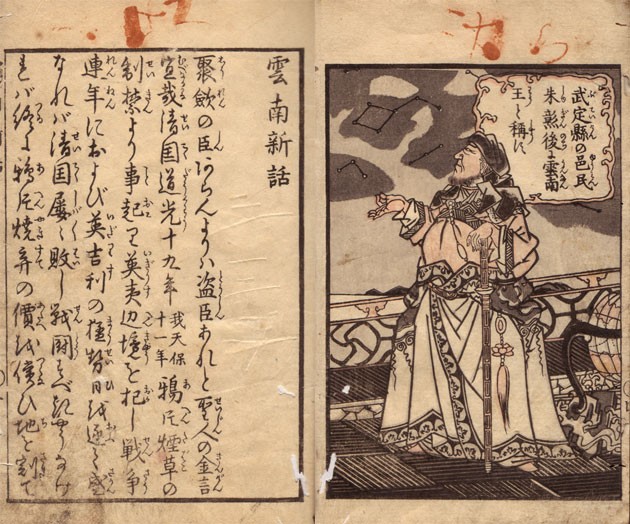 武定縣の邑民
朱彰後に雲南
王と稱す
雲南新話
聚斂の臣あらんよりハ盗臣あれと聖人の金言
宜哉清国道光十九年 我天保十一年 鴉片煙草の
制禁より事起り英夷辺境を犯し戦争
連年におよび英吉利の権勢日を逐て盛
なれバ清国屡〻敗し戦闘すべきやうなけ
れバ終に鴉片焼弃の價を償ひ地を割て